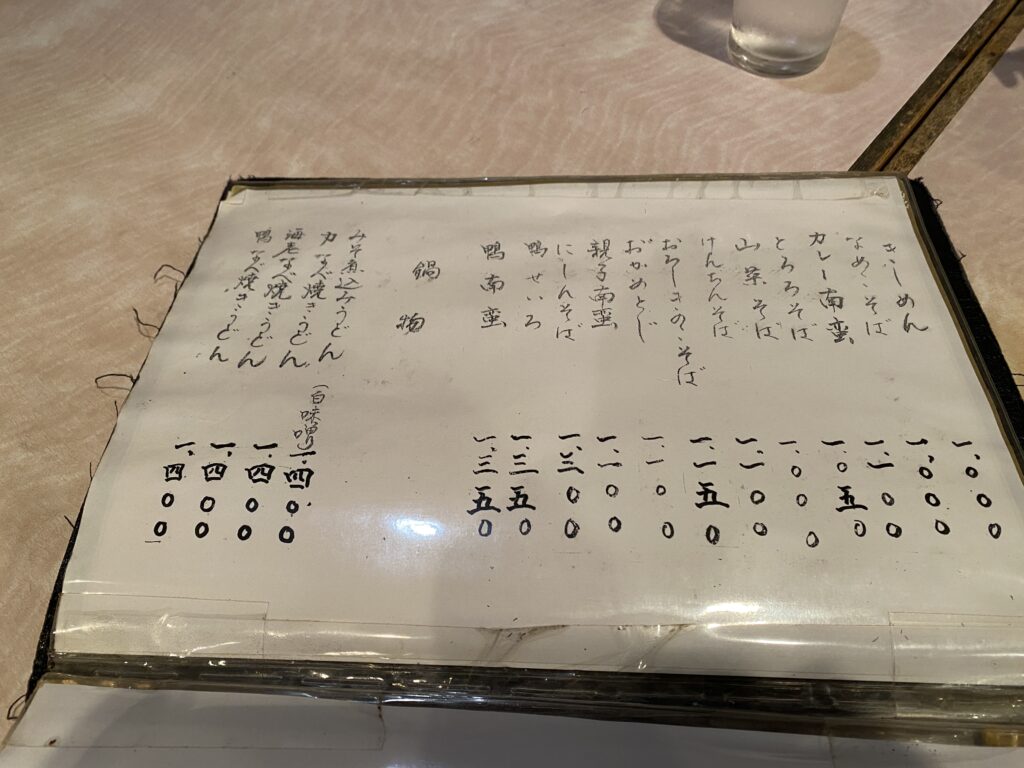 きしめん 一、〇〇〇
なめこそば 一、〇〇〇
カレー南蛮 一、一〇〇
とろろそば 一、〇五〇
山菜そば 一、〇〇〇
けんちんそば 一、一〇〇
おろしきのこそば 一、一五〇
おかめとじ 一、一〇〇
親子南蛮 一、一〇〇
にしんそば 一、三〇〇
鴨せいろ 一、三五〇
鴨南蛮 一、三五〇
鍋物
みそ煮込みうどん（白味噌） 一、四〇〇
力なべ焼きうどん 一、四〇〇
海老なべ焼きうどん 一、四〇〇
鴨なべ焼きうどん 一、四〇〇